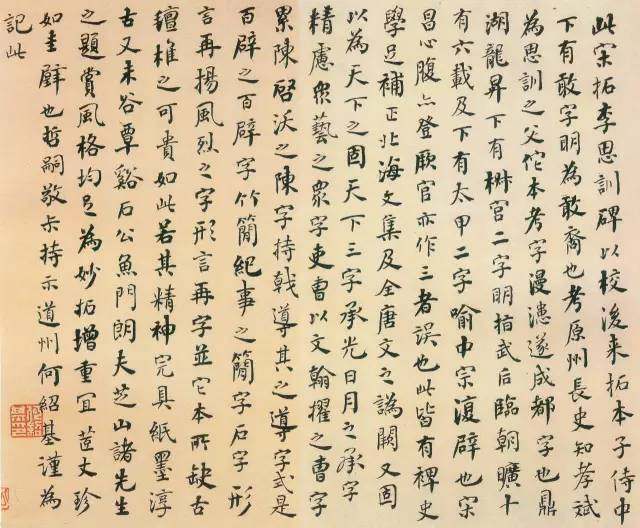 此宋拓李思訓碑以校後来拓本子侍中
下有敢字明為敢裔也考原州長史知孝斌
為思訓之父佗本考字漫漶遂成都字也鼎
湖龍昇下有椒宫二字明指武后臨朝曠十
有六載及下有太甲二字喻中宗復辟也宋
昌心腹亦登厥官亦作三者誤也此皆有裨史
學足補正北海文集及全唐文之譌闕又固
以為天下之固天下三字承光日月之承字
精慮眾藝之眾字吏曹以文翰擢之曹字
累陳啓沃之陳字持戟導其之導字式是
百辟之百辟字竹簡紀事之簡字石字形
言再揚風烈之字形言再字並它本所缺古
氊椎之可貴如此若其精神完具紙墨淳
古又未谷覃谿石公魚門朗夫芝山諸先生
之題賞風格均足為妙拓增重宜荳丈珍
如圭璧也哲嗣敬六持示道州何紹基謹為
記此